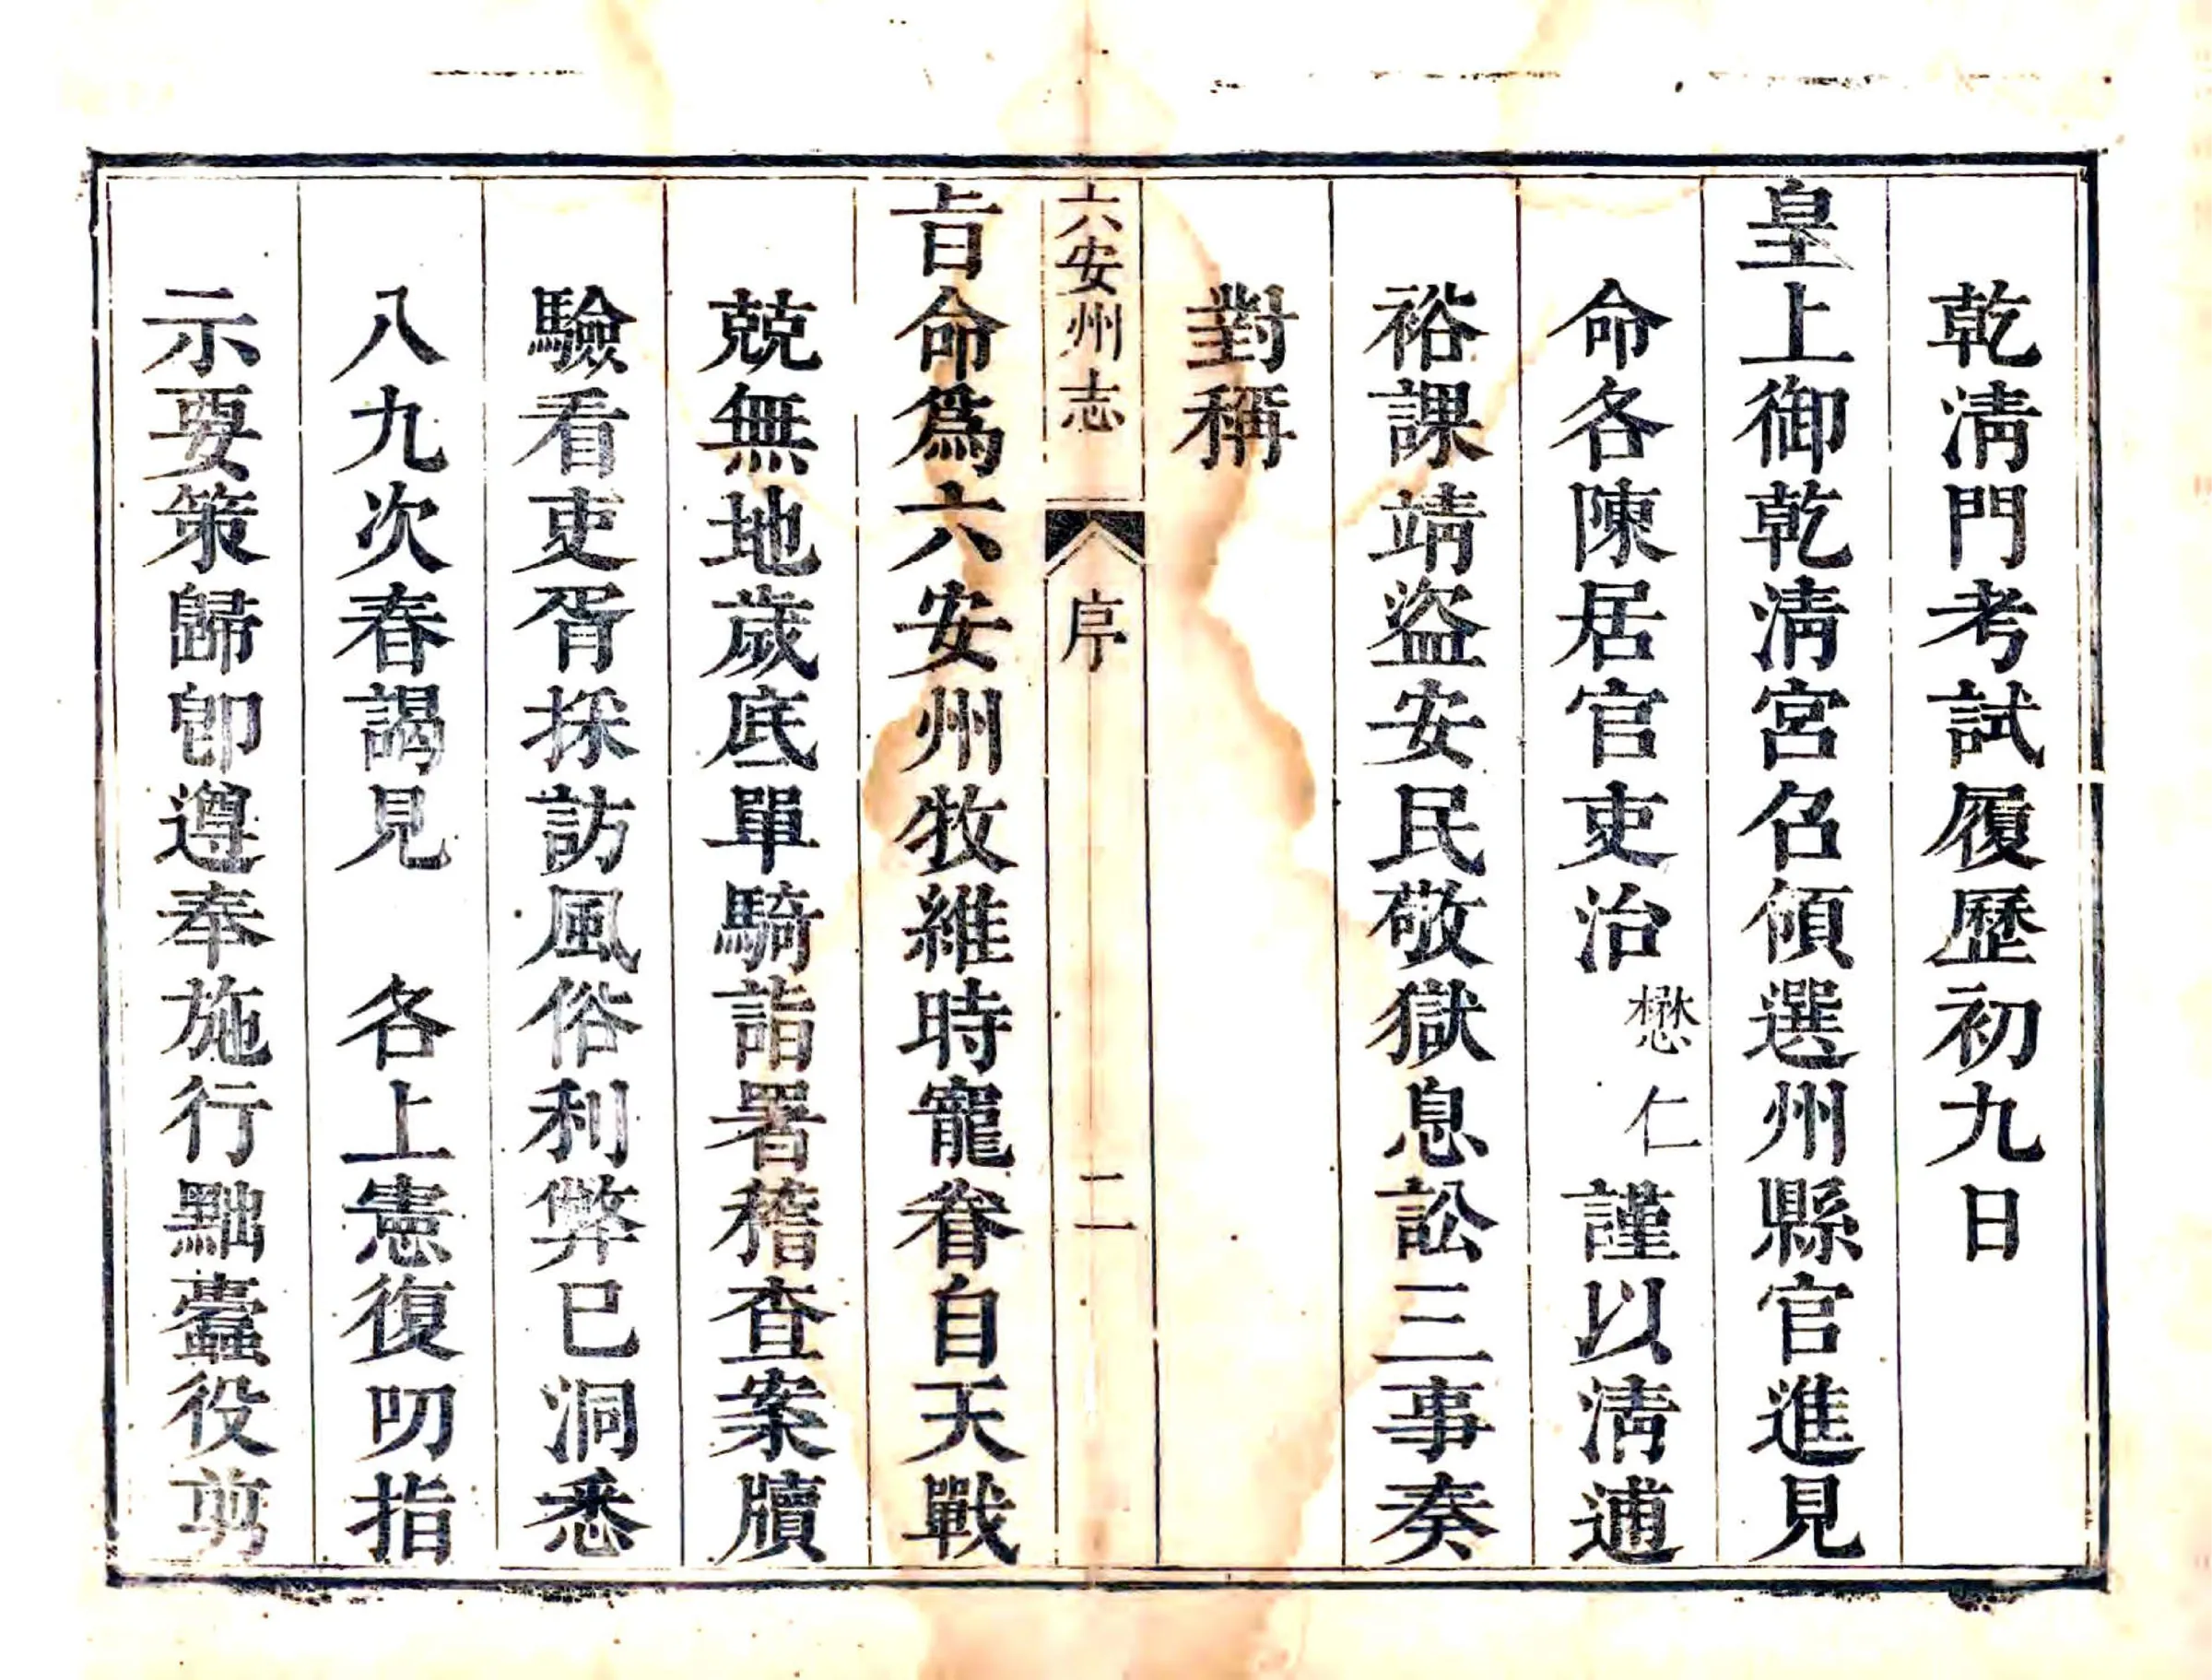 乾淸門考試履歷初九日
皇上御乾淸宮召傾選州縣官進見
命各陳居官吏治懋仁謹以淸逋
裕課靖盜安民敬獄息訟三事奏
對稱
六安州志 序 二
旨命爲六安州牧維時寵眷自天戰
兢無地歲底單騎詣署稽查案牘
驗看吏胥採訪風俗利弊已洞悉
八九次春謁見 各上憲復叨指
示要策歸卽遵奉施行黜蠹役剪